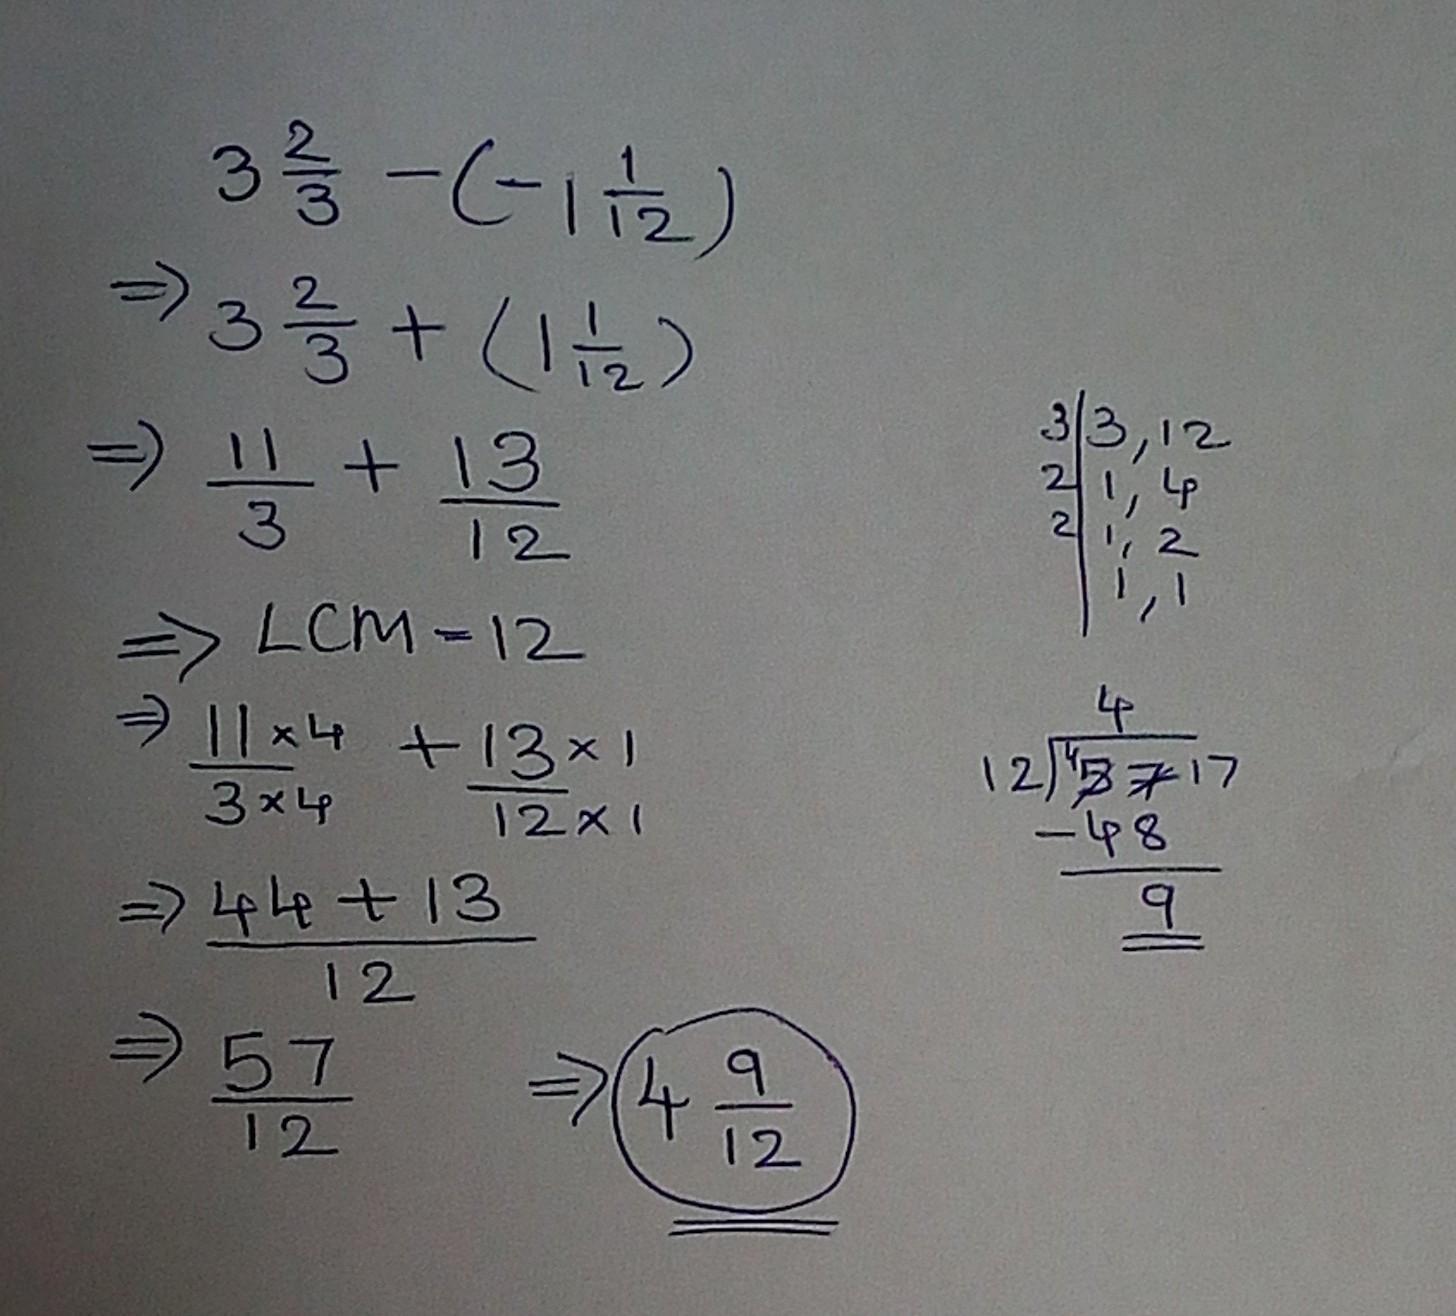 3 2/3 - (-1 1/12)
⇒ 3 2/3 + (1 1/12)
⇒ 11/3 + 13/12
⇒ LCM - 12
⇒ 11×4/3×4 + 13×1/12×1
⇒ 44+13/12
⇒ 57/12 ⇒ 4 9/12
3|3,12
2|1,4
2|1,2
|1,1
4
12)⁴57 17
-48
9